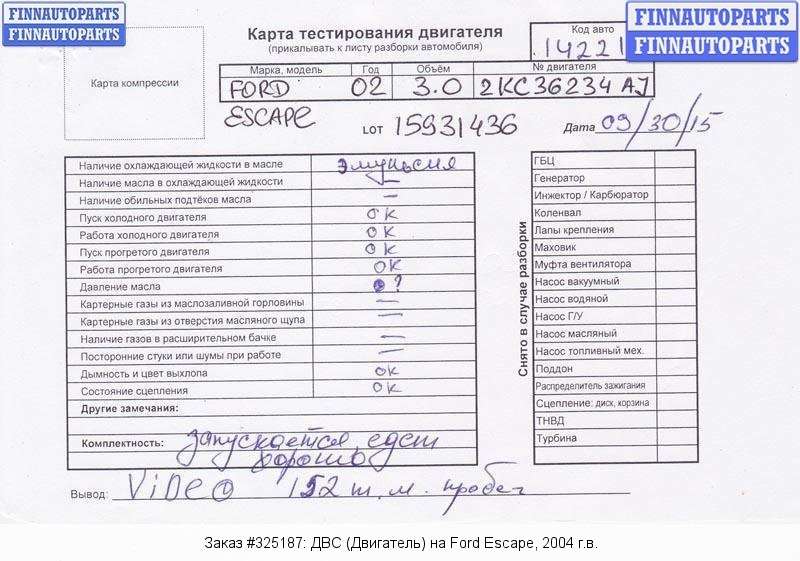 FINNAUTOPARTS
FINNAUTOPARTS
Карта тестирования двигателя
(прикалывать к листу разборки автомобиля)
Код авто
14221
FINNAUTOPARTS
FINNAUTOPARTS
Карта компрессии
Марка, модель Год Объём № двигателя
FORD 02 3.0 2KC36234 AJ
ESCAPE
LOT 15931436
Дата 09/30/15
Наличие охлаждающей жидкости в масле эмульсия
Наличие масла в охлаждающей жидкости –
Наличие обильных подтёков масла –
Пуск холодного двигателя OK
Работа холодного двигателя OK
Пуск прогретого двигателя OK
Работа прогретого двигателя OK
Давление масла ?
Картерные газы из маслозаливной горловины –
Картерные газы из отверстия масляного щупа –
Наличие газов в расширительном бачке –
Посторонние стуки или шумы при работе –
Дымность и цвет выхлопа OK
Состояние сцепления OK
Другие замечания:
Комплектность: запускается, едет
хорошо
Вывод: ViDEO 152 т.м. пробег
Снято в случае разборки
ГБЦ
Генератор
Инжектор / Карбюратор
Коленвал
Лапы крепления
Маховик
Муфта вентилятора
Насос вакуумный
Насос водяной
Насос Г/У
Насос масляный
Насос топливный мех.
Поддон
Распределитель зажигания
Сцепление: диск, корзина
ТНВД
Турбина
Заказ #325187: ДВС (Двигатель) на Ford Escape, 2004 г.в.